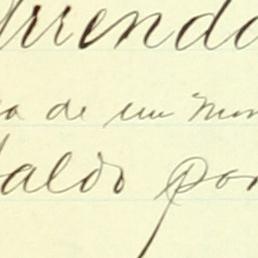 Arrenda
a de un mon
aldo por